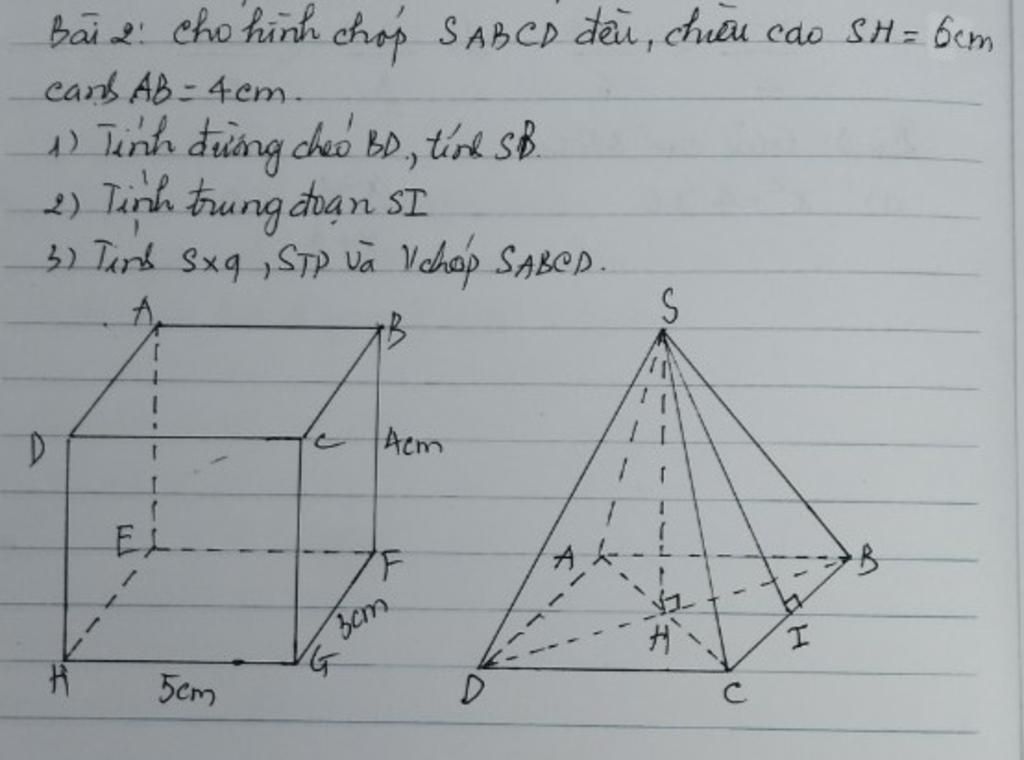 Bài 2: Cho hình chóp SABCD đều, chiều cao SH = 6cm
cạnh AB = 4cm.
1) Tính đường chéo BD, tính SB.
2) Tính trung đoạn SI
3) Tính Sxq, STP và V chóp SABCD.
A
B
D
C
4cm
E
F
3cm
H
G
5cm
S
A
B
H
I
D
C